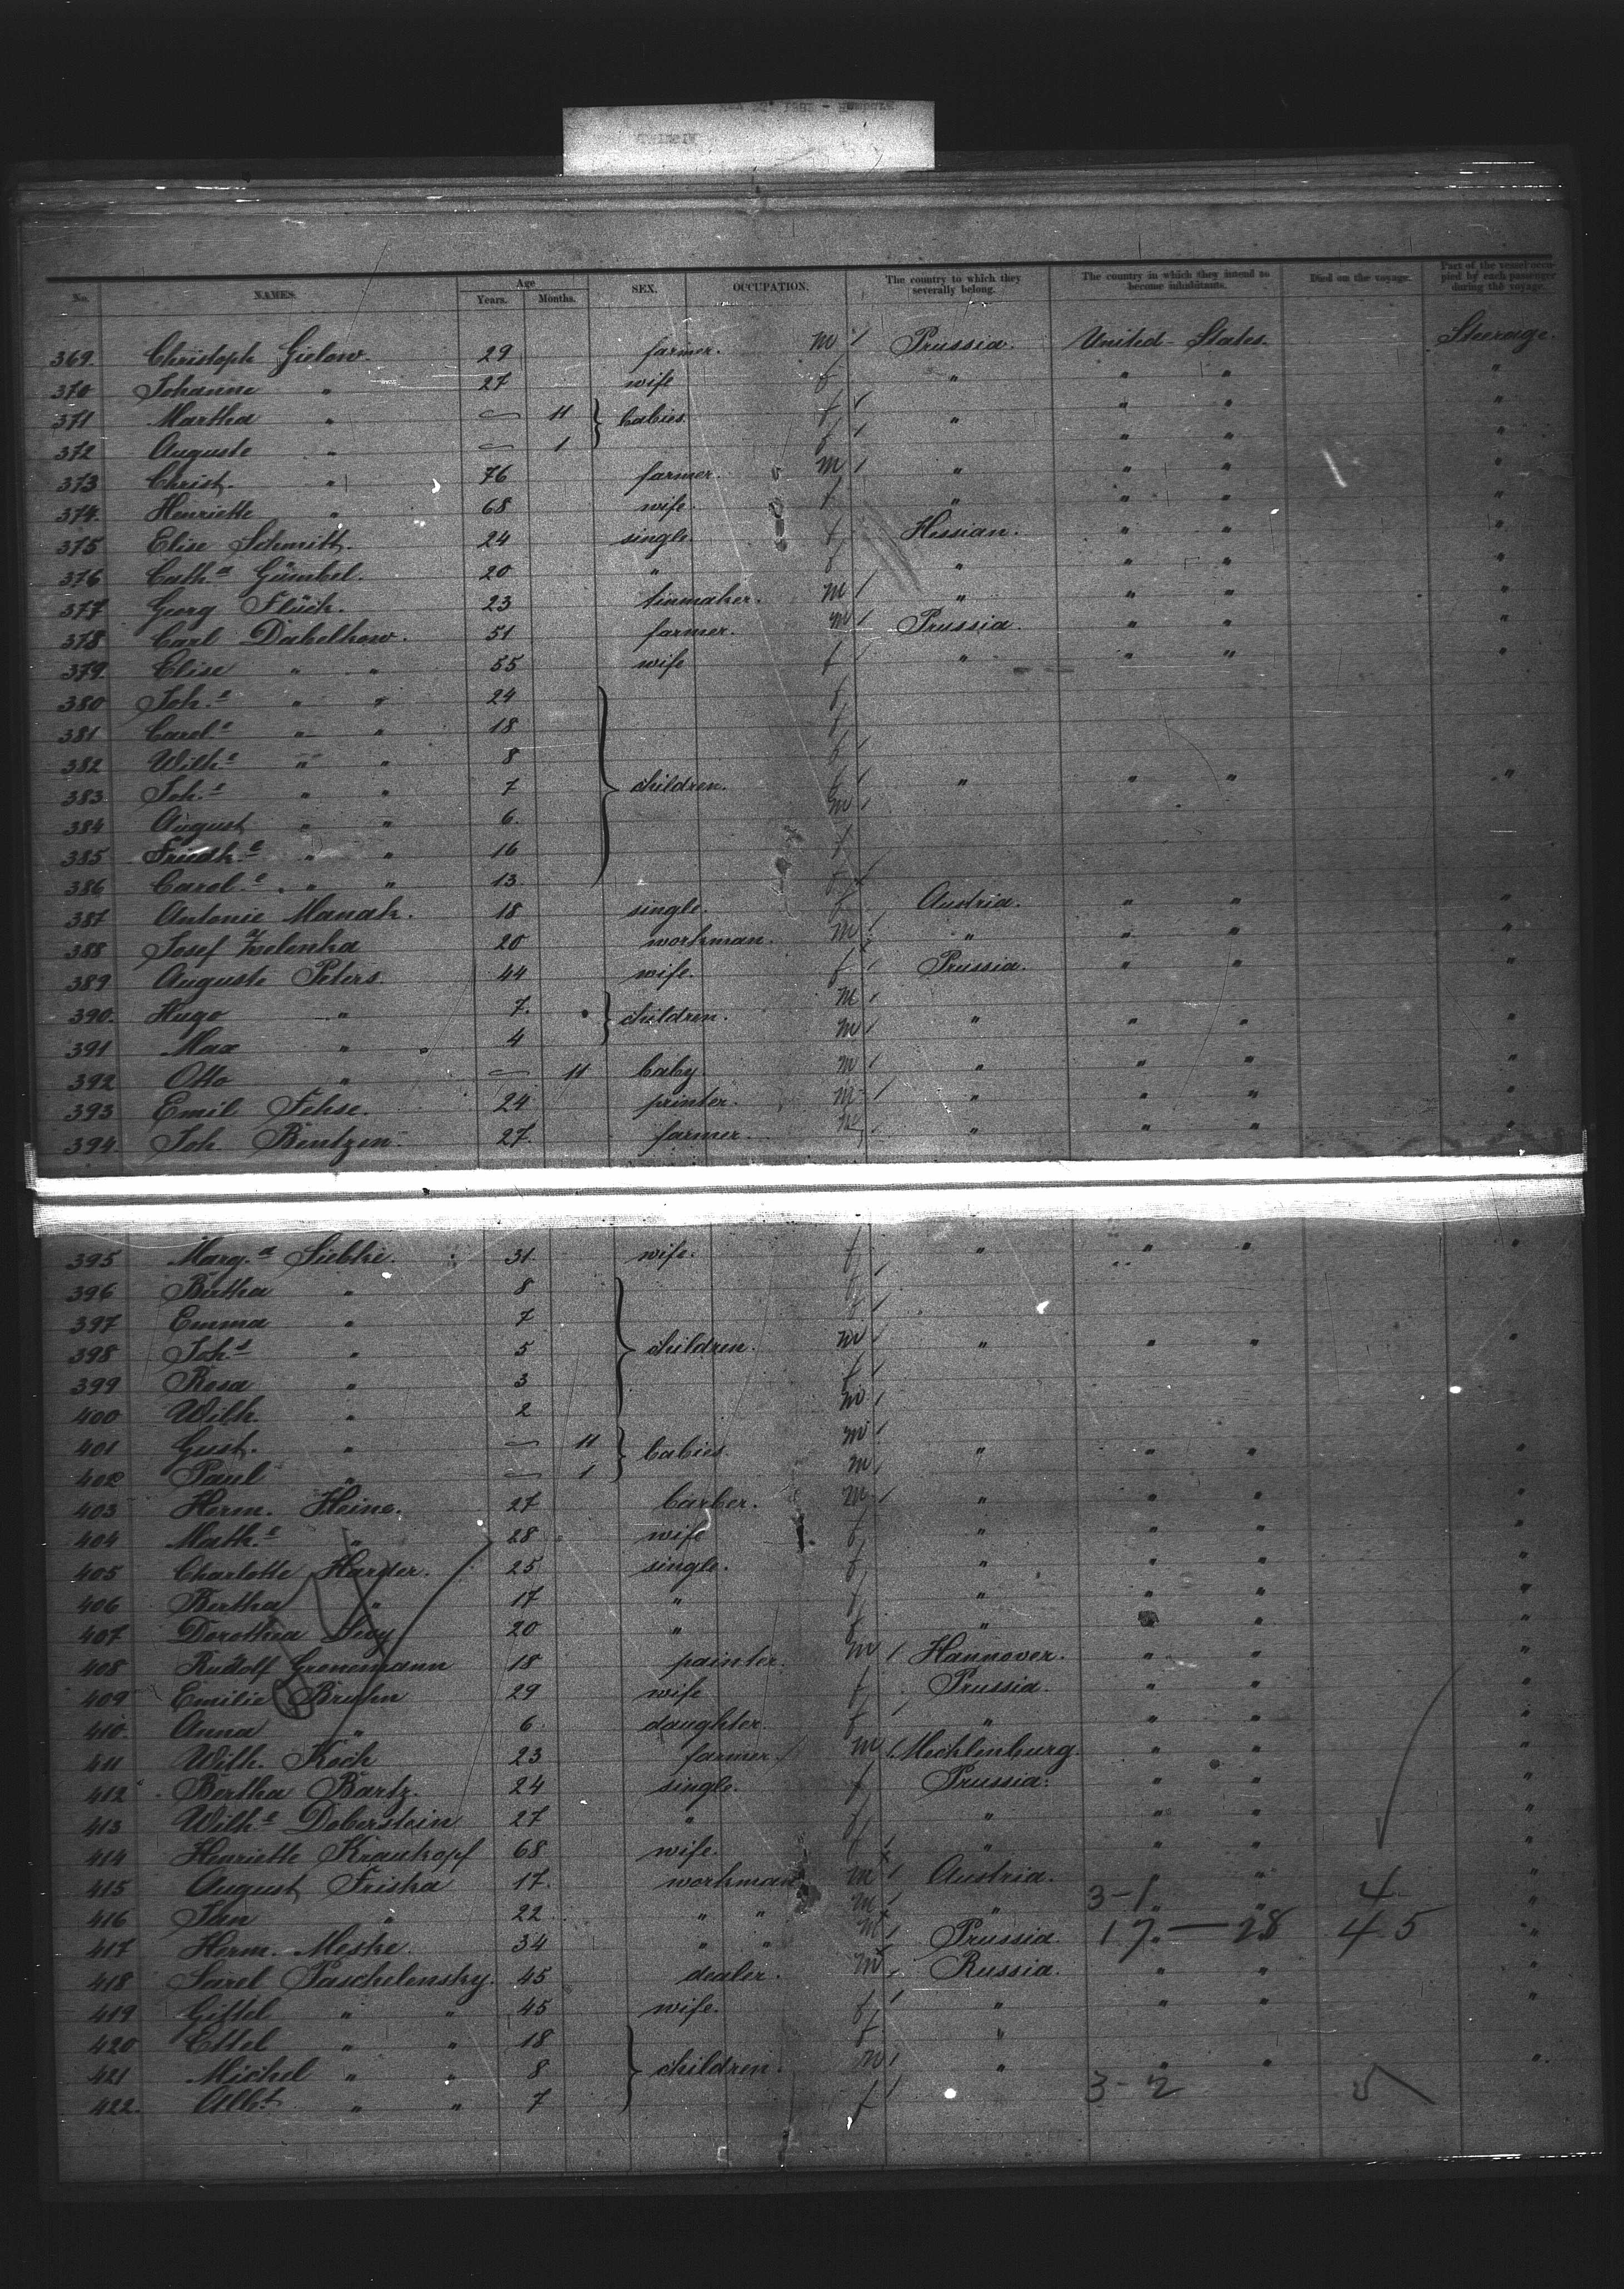 No. NAMES. Age Years. Months. SEX. OCCUPATION. The country to which they severally belong. The country in which they intend to become inhabitants. Died on the voyage. Part of the vessel occupied by each passenger during the voyage.
369. Christoph Gielow. 29 farmer. m / Prussia. United States. Steerage.
370 Johanne " 27 wife f " " " "
371 Martha " — 11 } babies. f / " " " "
372 Auguste " — 1 f / " " "
373 Christ. " 76 farmer. m / " " " "
374. Henriette " 68 wife. f / " " " "
375 Elise Schmitt. 24 single. f Hessian. " " "
376 Cath.a Gümbel. 20 " f " " " "
377 Georg Flüch. 23 tinmaker. m / " " " "
378 Carl Dabelkow. 51 farmer. m / Prussia. " " "
379. Elise " " 55 wife f / " " " "
380 Joh.e " " 24 f
381 Carol.e " " 18 f
382 Wilh.e " " 8 f /
383. Joh.e " " 7 } children. f / " " " "
384 August " " 6. m /
385 Friedk.e " " 16 f
386 Carol.e " " 13. f /
387 Antonie Manak. 18 single. f Austria. " " "
388 Josef Zwelenka 20 workman. m / " " " "
389 Auguste Peters. 44 wife. f / Prussia. " " "
390. Hugo " 7. } children. m / " " " "
391 Max " 4 m /
392 Otto " — 11 baby. m / " " " "
393 Emil Fehse. 24 printer. m / " " " "
394. Joh. Bentzen. 27. farmer. m / " " " "
395 Marg.a Siebke. 31. wife. f " " " "
396 Bertha " 8 f /
397 Emma " 7 f /
398 Joh.s " 5 } children. m / " " " "
399 Rosa " 3 f /
400 Wilh. " 2 m /
401 Gust. " — 11 } babies. m / " " " "
402 Paul " — 1 m /
403 Herm. Heine. 27 barber. m / " " " "
404 Math.e " 28 wife f " " " "
405 Charlotte Harder. 25 single. f " " " "
406 Bertha " 17 " f " " " "
407 Dorothea Levy 20 " f " " " "
408 Rudolf Gronemann 18 painter. m / Hannover. " " "
409 Emilie Bruhn 29 wife f Prussia. " " "
410. Anna " 6. daughter. f / " " " "
411 Wilh. Koch 23 farmer. m / Mecklenburg. " " "
412 Bertha Bartz. 24 single. f Prussia. " " "
413 Wilh.e Doberstein 27 " f " " " "
414 Henriette Kraukopf 68 wife. f / " " " "
415 August Friska 17. workman m / Austria. " "
3-1 4
416 Jan " 22 " " m / " " " "
417 Herm. Meske. 34 " " m / Prussia 17 — 28 45 "
418 Sarel Paschelensky. 45 dealer. m / Russia. " " "
419 Gittel " " 45 wife. f / " " " "
420 Ettel " " 18 f "
421 Michel " " 8 } children. m / " " " "
422. Alb.t " " 7 f / 3-2 5